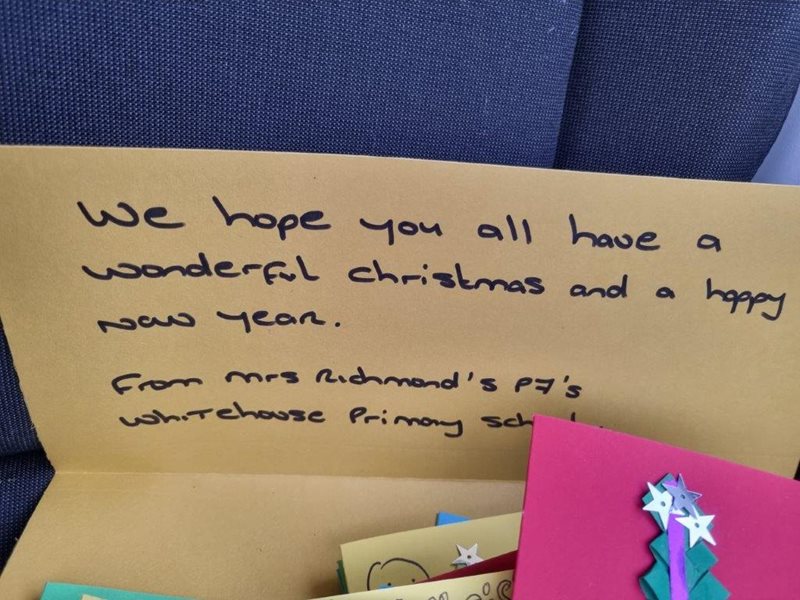 We hope you all have a
wonderful christmas and a happy
New year.
From Mrs Richmond's P7's
Whitehouse Primary